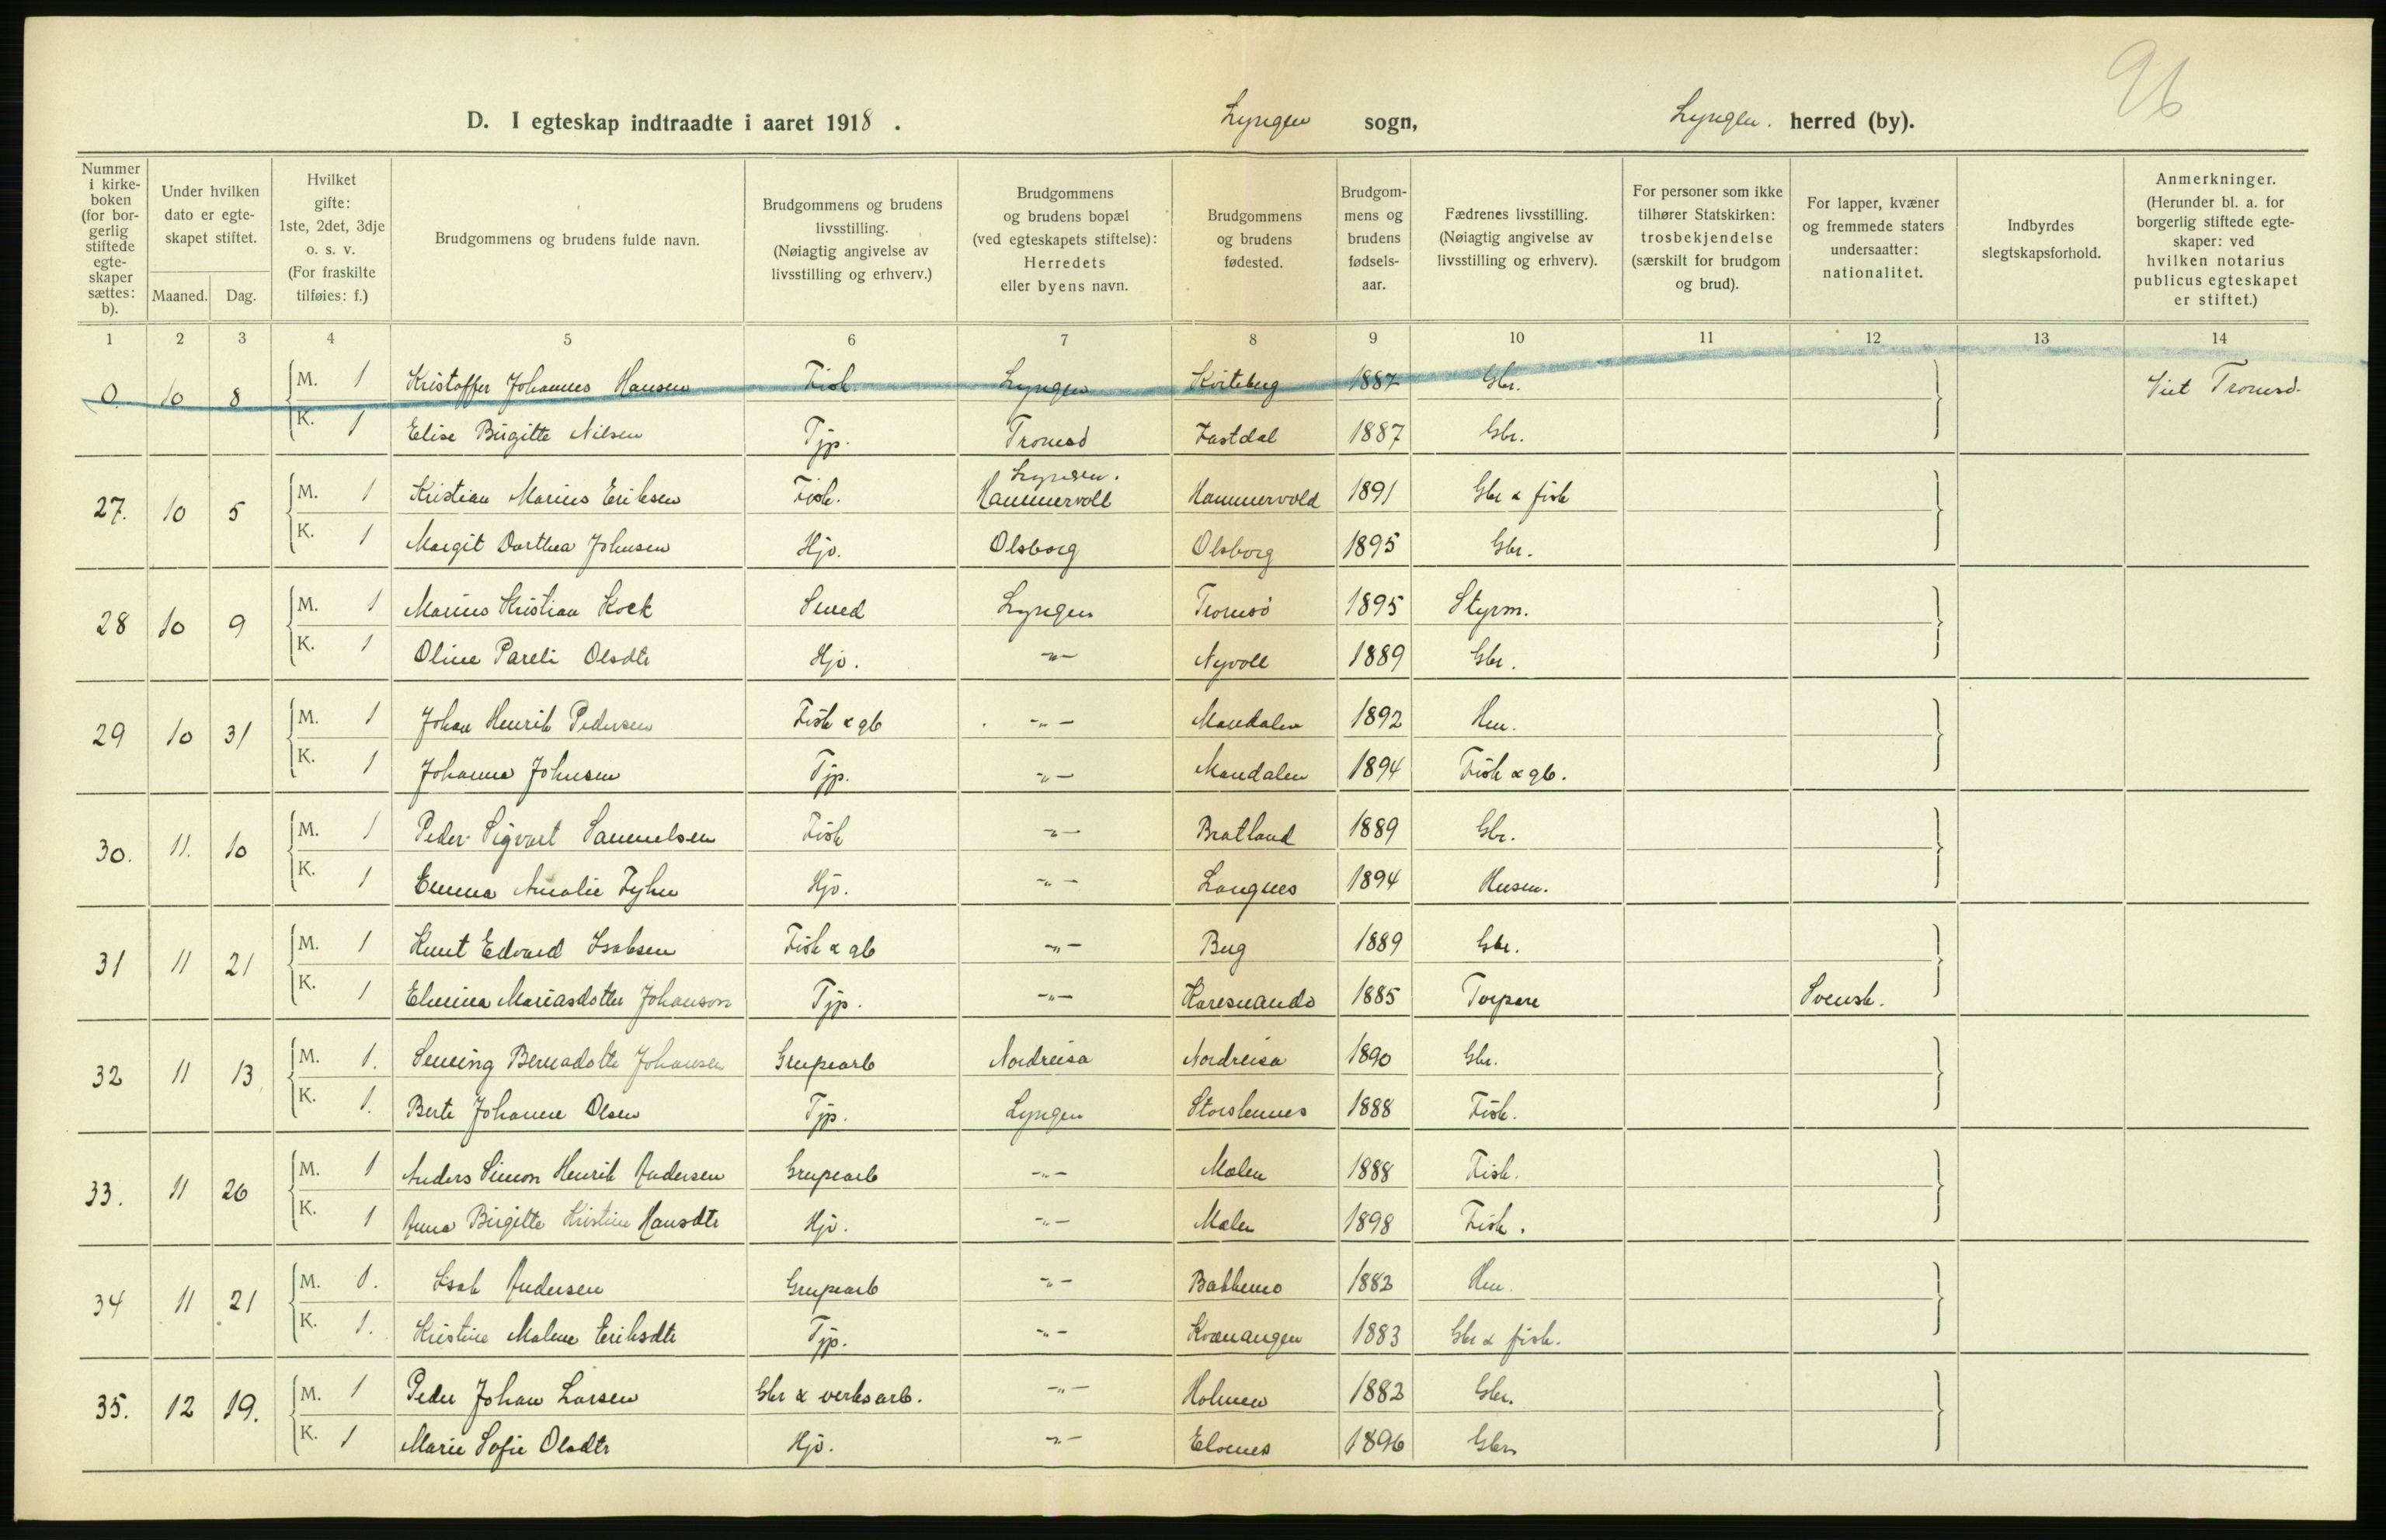 96
D. I egteskap indtraadte i aaret 1918 . Lyngen sogn, Lyngen. herred (by).
Nummer i kirkeboken (for borgerlig stiftede egteskaper sættes: b). Under hvilken dato er egteskapet stiftet. Maaned. Dag. Hvilket gifte: 1ste, 2det, 3dje o. s. v. (For fraskilte tilføies: f.) Brudgommens og brudens fulde navn. Brudgommens og brudens livsstilling. (Nøiagtig angivelse av livsstilling og erhverv.) Brudgommens og brudens bopæl (ved egteskapets stiftelse): Herredets eller byens navn. Brudgommens og brudens fødested. Brudgommens og brudens fødselsaar. Fædrenes livsstilling. (Nøiagtig angivelse av livsstilling og erhverv). For personer som ikke tilhører Statskirken: trosbekjendelse (særskilt for brudgom og brud). For lapper, kvæner og fremmede staters undersaatter: nationalitet. Indbyrdes slegtskapsforhold. Anmerkninger. (Herunder bl. a. for borgerlig stiftede egteskaper: ved hvilken notarius publicus egteskapet er stiftet.)
1 2 3 4 5 6 7 8 9 10 11 12 13 14
0. 10 8 M. 1 Kristoffer Johannes Hansen Fisk. Lyngen Kviteberg 1887 Gbr. Viet Tromsø.
K. 1 Elise Birgitte Nilsen Tjp. Tromsø Fastdal 1887 Gbr.
27. 10 5 M. 1 Kristian Marius Eriksen Fisk. Lyngen. Hammervoll Hammervold 1891 Gbr & fisk
K. 1 Margit Dorthea Johnsen Hjv. Olsborg Olsborg 1895 Gbr.
28 10 9 M. 1 Marius Kristian Kock Smed Lyngen Tromsø 1895 Styrm.
K. 1 Oline Pareli Olsdtr Hjv. -"- Nyvoll 1889 Gbr.
29 10 31 M. 1 Johan Henrik Pedersen Fisk & gb -"- Mandalen 1892 Hm.
K. 1 Johanna Johnsen Tjp. -"- Mandalen 1894 Fisk & gb.
30. 11. 10 M. 1 Peder Sigvart Samuelsen Fisk -"- Bratland 1889 Gbr.
K. 1 Emma Amalie Fyhn Hjv. -"- Langnes 1894 Husm.
31 11 21 M. 1 Knut Edvard Isaksen Fisk & gb -"- Bug 1889 Gbr.
K. 1 Elmina Mariasdotter Johanson Tjp. -"- Karesuando 1885 Torpare Svensk.
32 11 13 M. 1. Seming Bernadotte Johansen Grupearb Nordreisa Nordreisa 1890 Gbr.
K. 1. Berte Johanne Olsen Tjp. Lyngen Storslennes 1888 Fisk.
33. 11 26 M. 1 Anders Simon Henrik Andersen Grupearb -"- Malen 1888 Fisk.
K. 1 Anna Birgitte Kristine Hansdtr Hjv. -"- Malen 1898 Fisk.
34 11 21 M. 1. Isak Andersen Grupearb -"- Bakkemo 1883 Hm.
K. 1. Kristine Malene Eriksdtr Tjp. -"- Kvænangen 1883 Gbr & fisk.
35. 12 19. M. 1 Peder Johan Larsen Gbr & verksarb. -"- Holmen 1883 Gbr.
K. 1 Marie Sofie Olsdtr Hjv. -"- Elvenes 1896 Gbr